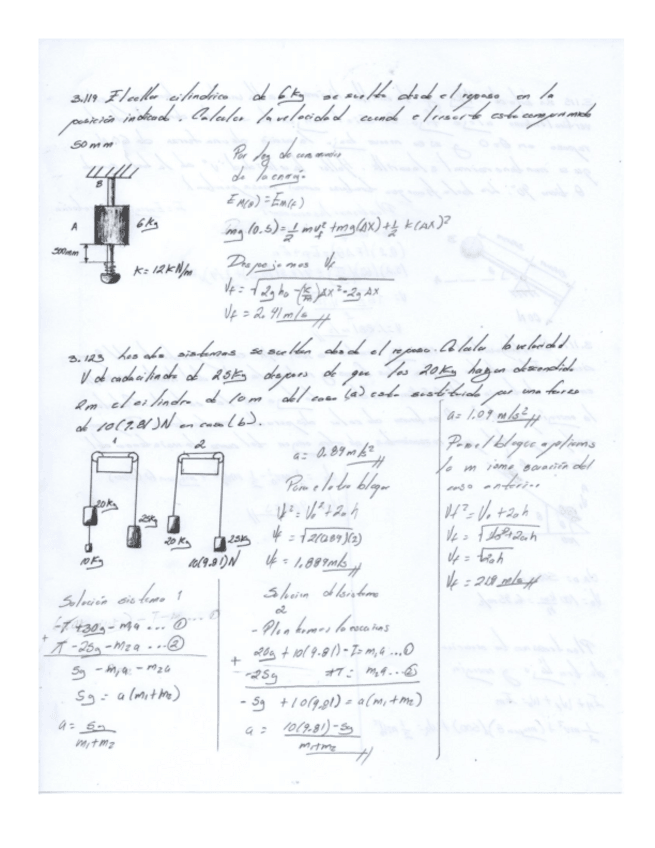 3.119 El collar cilindrico de 6Kg se suelta desde el reposo en la
posición indicada. Calcular la velocidad cuando el resorte esta comprimido
50mm
B
A
6Kg
500mm
K=12KN/m
Por ley de
de la energía
EM(0)=EM(f)
mg(0.5)=1/2 mvf²+mg(ΔX)+1/2 k(ΔX)²
Despejamos Vf
Vf=√2gho-(K/m)ΔX²-2gΔX
Vf=2.41m/s
3.123 Los dos sistemas se sueltan desde el reposo. Calcular la velocidad
V de cada cilindro de 25Kg despues de que los 20Kg hayan descendido
2m el cilindro de 10m del caso (a) esta sustituido por una fuerza
de 10(9.81)N en caso (b).
1
2
20Kg
25Kg
10Kg
20Kg
25Kg
10(9.81)N
a= 0.89m/s²
Para el otro bloque
Vf²=Vo²+2ah
Vf=√2(0.89)(2)
Vf=1.889m/s
a=1.09 m/s²
Para el bloque aplicamos
la misma ecuación del
caso anterior
Vf²=Vo+2ah
Vf=√Vo²+2ah
Vf=√2ah
Vf=2.18 m/s
Solución sistema 1
-T+30g-m1a ... ①
+
T-25g-m2a ... ②
5g-m1a-m2a
5g=a(m1+m2)
a= 5g
m1+m2
Solucion del sistema
2
-Planteamos la ecuacion
20g+10(9.81)-T=m1a ...①
+
-25g +T= m2a ...②
-5g +10(9.81)=a(m1+m2)
a= 10(9.81)-5g
m1+m2